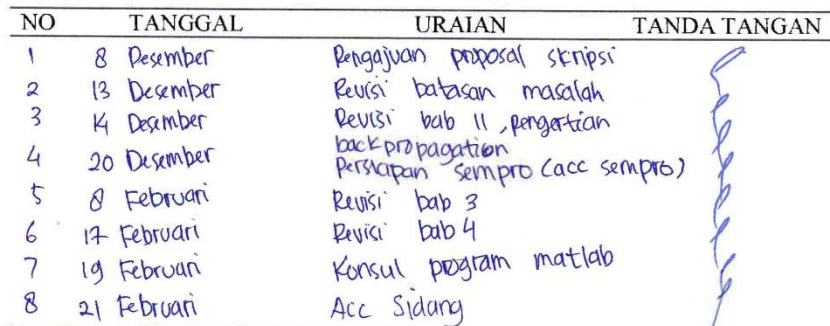 NO TANGGAL URAIAN TANDA TANGAN
1 8 Desember Pengajuan proposal skripsi
2 13 Desember Revisi batasan masalah
3 14 Desember Revisi bab II, pengertian
backpropagation
4 20 Desember Persiapan sempro (acc sempro)
5 8 Februari Revisi bab 3
6 17 Februari Revisi bab 4
7 19 Februari Konsul program matlab
8 21 Februari Acc Sidang